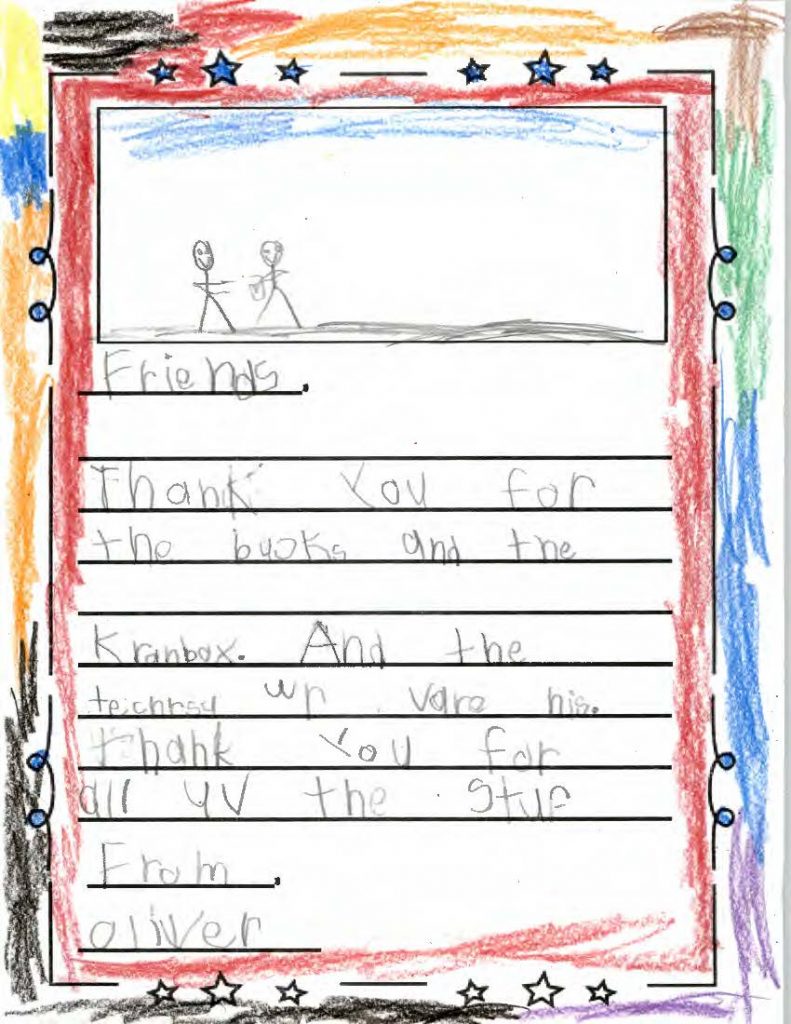 Friends,
Thank You for
the books and the
Kranbox. And the
teichrsy wr vare nis.
thank You for
all uv the stuf
From,
oliver